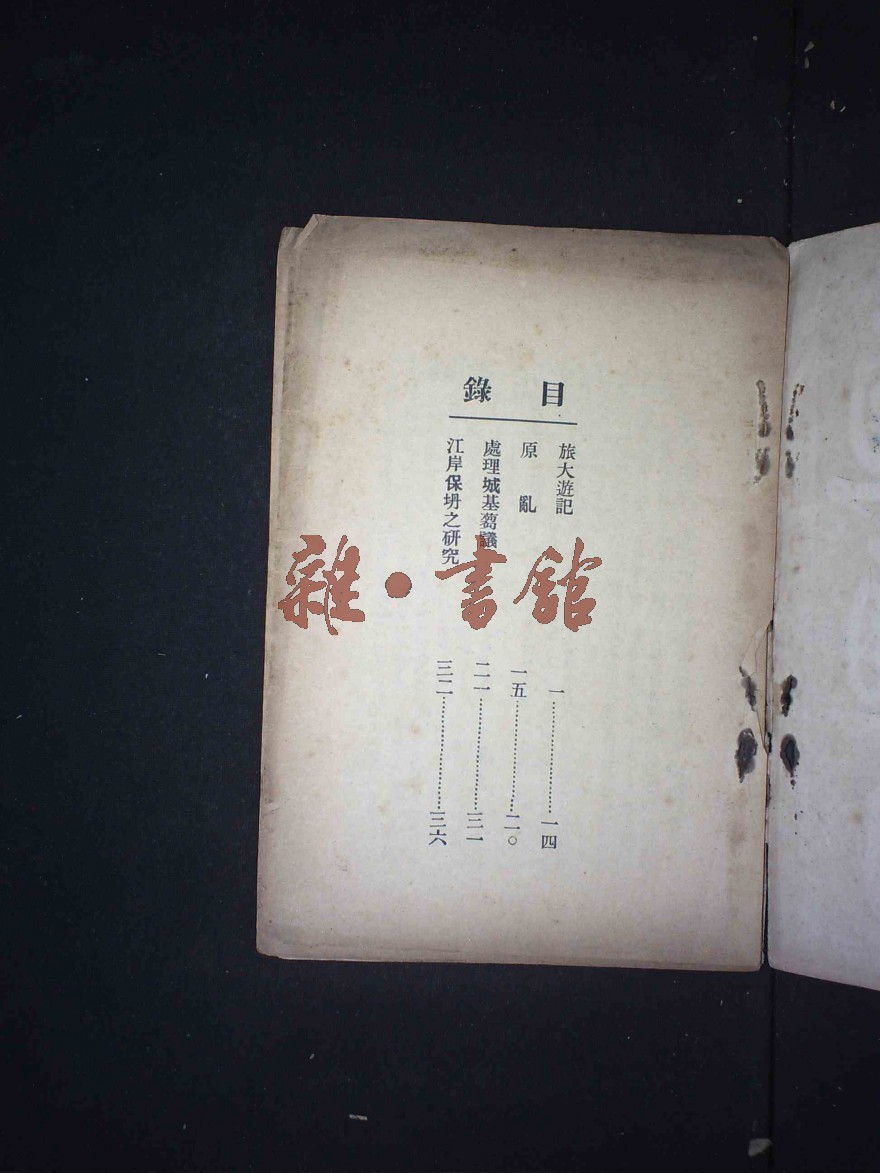 目錄
旅大遊記 一……………一四
原亂 一五……………二〇
處理城基芻議 二一……………三一
江岸保坍之研究 三二……………三六
雜·書館